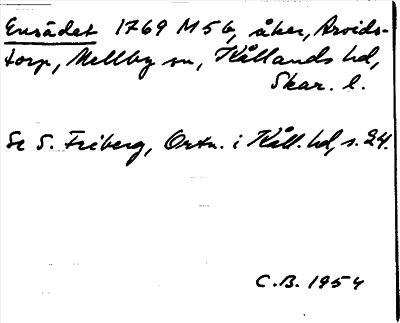 Ensädet 1769 M56, åker, Arvids-
torp, Mellby sn, Kållands hd,
Skar. l.
Se S. Friberg, Ortn. i Kåll. hd, s. 24.
C.B. 1954